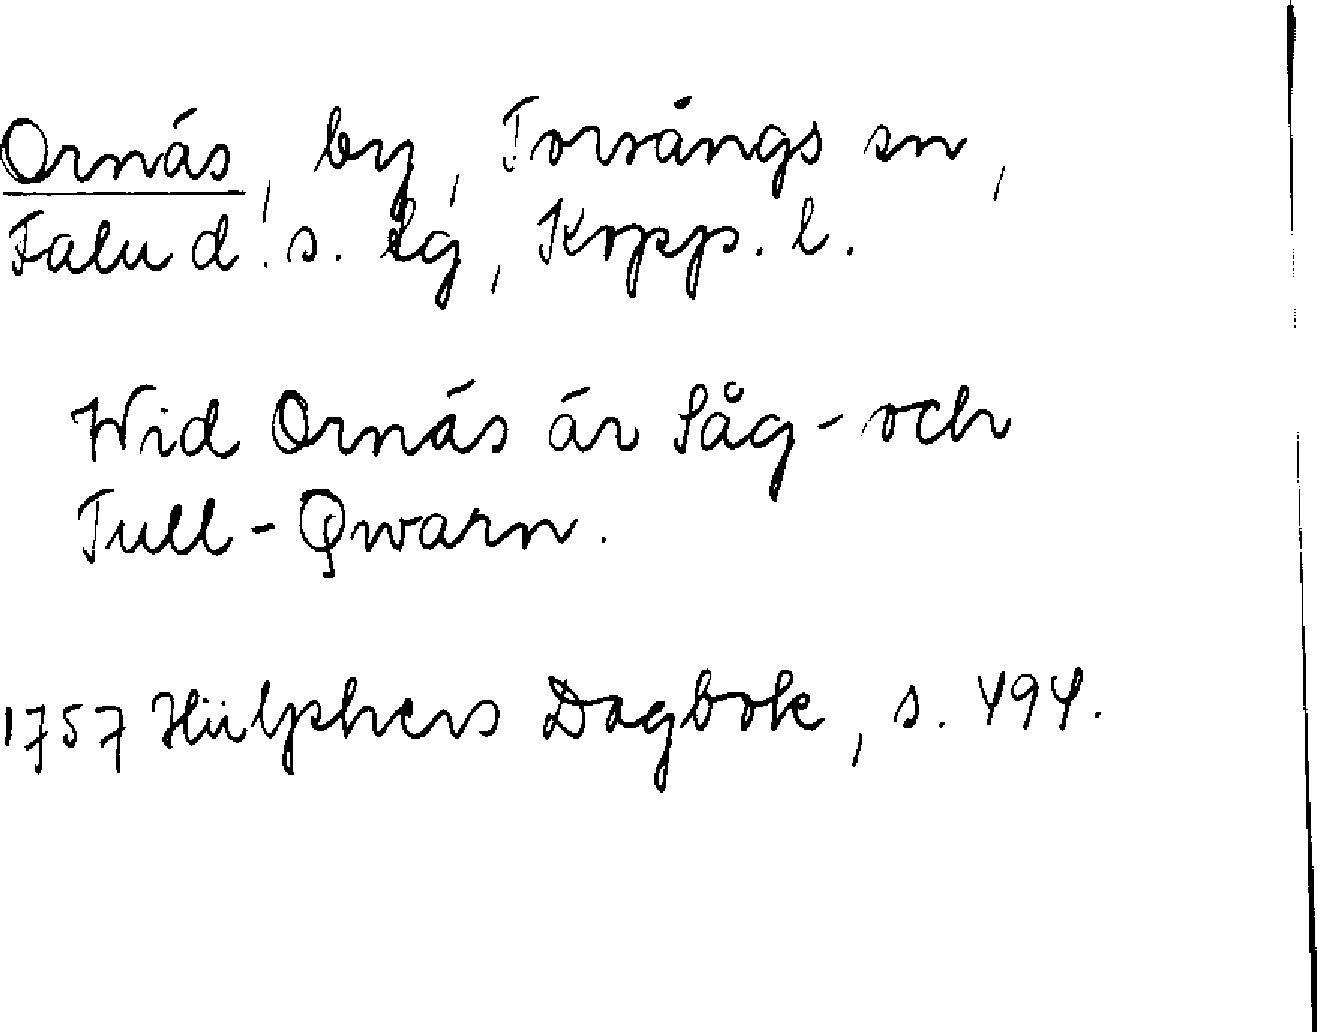 Ornäs, by, Torsångs sn,
Falu d. s. lg, Kopp. l.
Wid Ornäs är Såg- och
Tull-Qwarn.
1757 Hülphers Dagbok, s. 494.